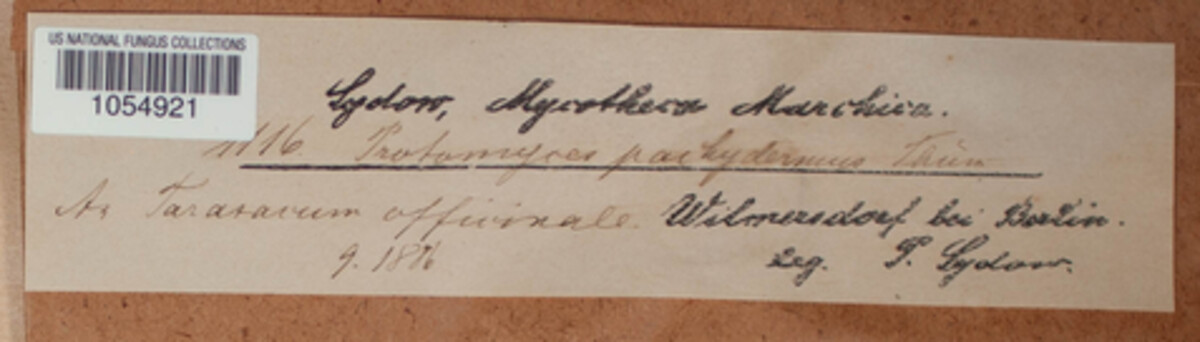 US NATIONAL FUNGUS COLLECTIONS
1054921
Sydow, Mycotheca Marchica.
1116 Protomyces pachydermus Thüm
An Taraxacum officinale. Wilmersdorf bei Berlin.
9. 1886 leg. P. Sydow.